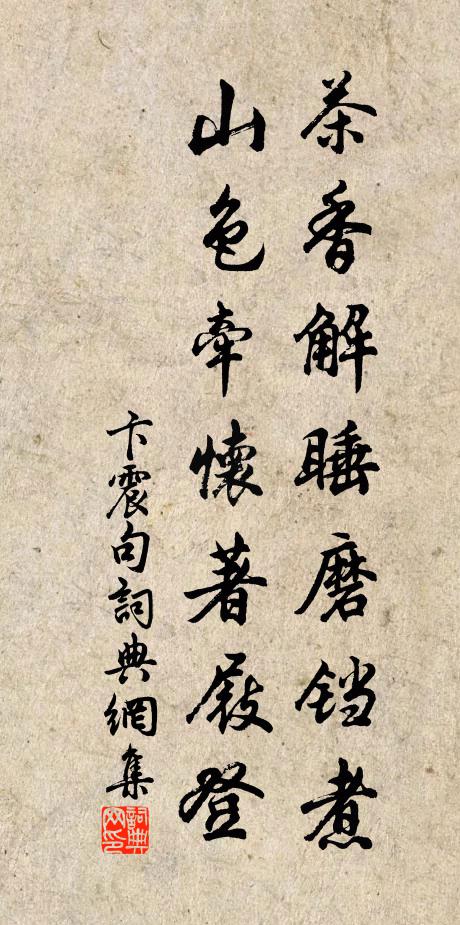 茶香解睡磨铛煮
山色牽懷著屐登
卞震句詞典網集
詞典网印